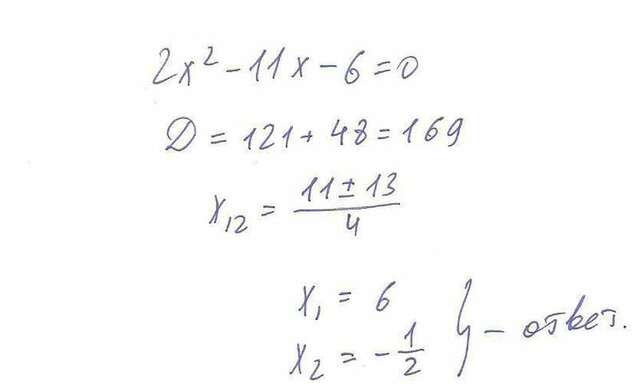 2x² - 11x - 6 = 0
D = 121 + 48 = 169
x₁₂ = (11 ± 13)/4
x₁ = 6
x₂ = -1/2 } - ответ.